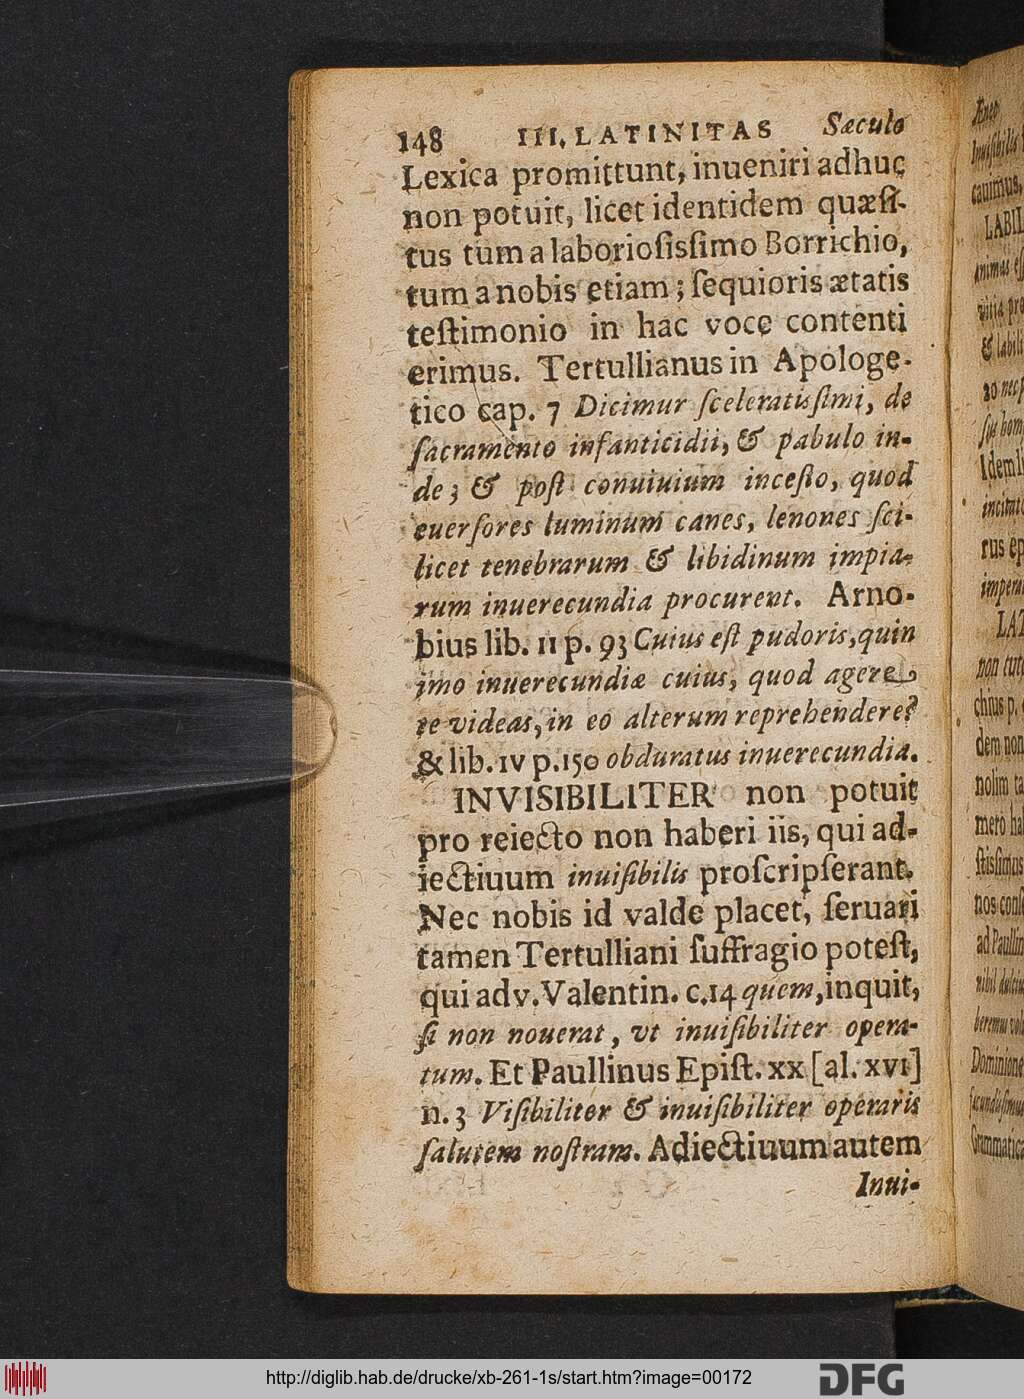 148 III. LATINITAS Sæculo
Lexica promittunt, inueniri adhuc
non potuit, licet identidem quæſi-
tus tum a laborioſisſimo Borrichio,
tum a nobis etiam; ſequioris ætatis
teſtimonio in hac voce contenti
erimus. Tertullianus in Apologe-
tico cap. 7 Dicimur ſceleratisſimi, de
ſacramento infanticidii, & pabulo in-
de; & poſt conuiuium inceſto, quod
euerſores luminum canes, lenones ſci-
licet tenebrarum & libidinum impia-
rum inuerecundia procurent. Arno-
bius lib. II p. 93 Cuius eſt pudoris, quin
imo inuerecundiæ cuius, quod agere
te videas, in eo alterum reprehendere?
& lib. IV p. 150 obduratus inuerecundia.
INVISIBILITER non potuit
pro reiecto non haberi iis, qui ad-
iectiuum inuiſibilis proſcripſerant.
Nec nobis id valde placet, ſeruari
tamen Tertulliani ſuffragio poteſt,
qui adv. Valentin. c. 14 quem, inquit,
ſi non nouerat, vt inuiſibiliter opera-
tum. Et Paullinus Epiſt. XX [al. XVI]
n. 3 Viſibiliter & inuiſibiliter operaris
ſalutem noſtram. Adiectiuum autem
Inui-
cauimus,
LABIL
animas eſ
vitia pre
& labili
20 nec p
ſus hom
Idem l
incitat
rus ep
impera
LAT
non tut
chius p.
dem non
nolim ta
mero ha
ſtisſimus
nos conſ
ad Paullin
nihil dulciu
beremus vol
Dominione
Grammatica
http://diglib.hab.de/drucke/xb-261-1s/start.htm?image=00172
DFG